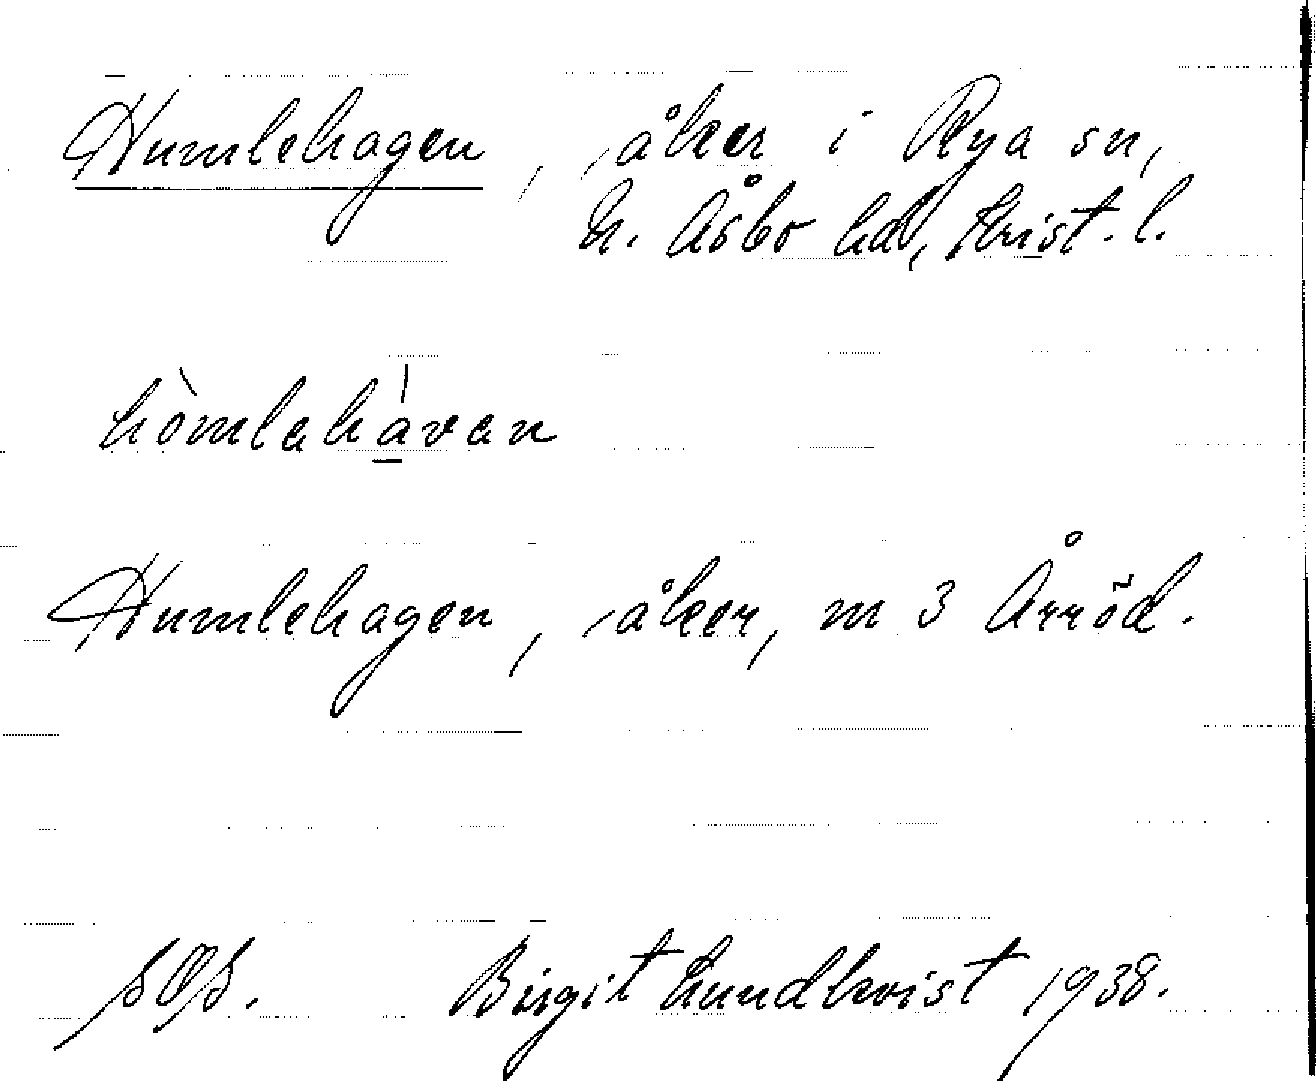 Humlehagen, åker i Rya sn,
N. Åsbo hd, Krist. l.
hòmlahàvan
Humlehagen, åker, m 3 Årröd.
Birgit Lundkvist 1938.